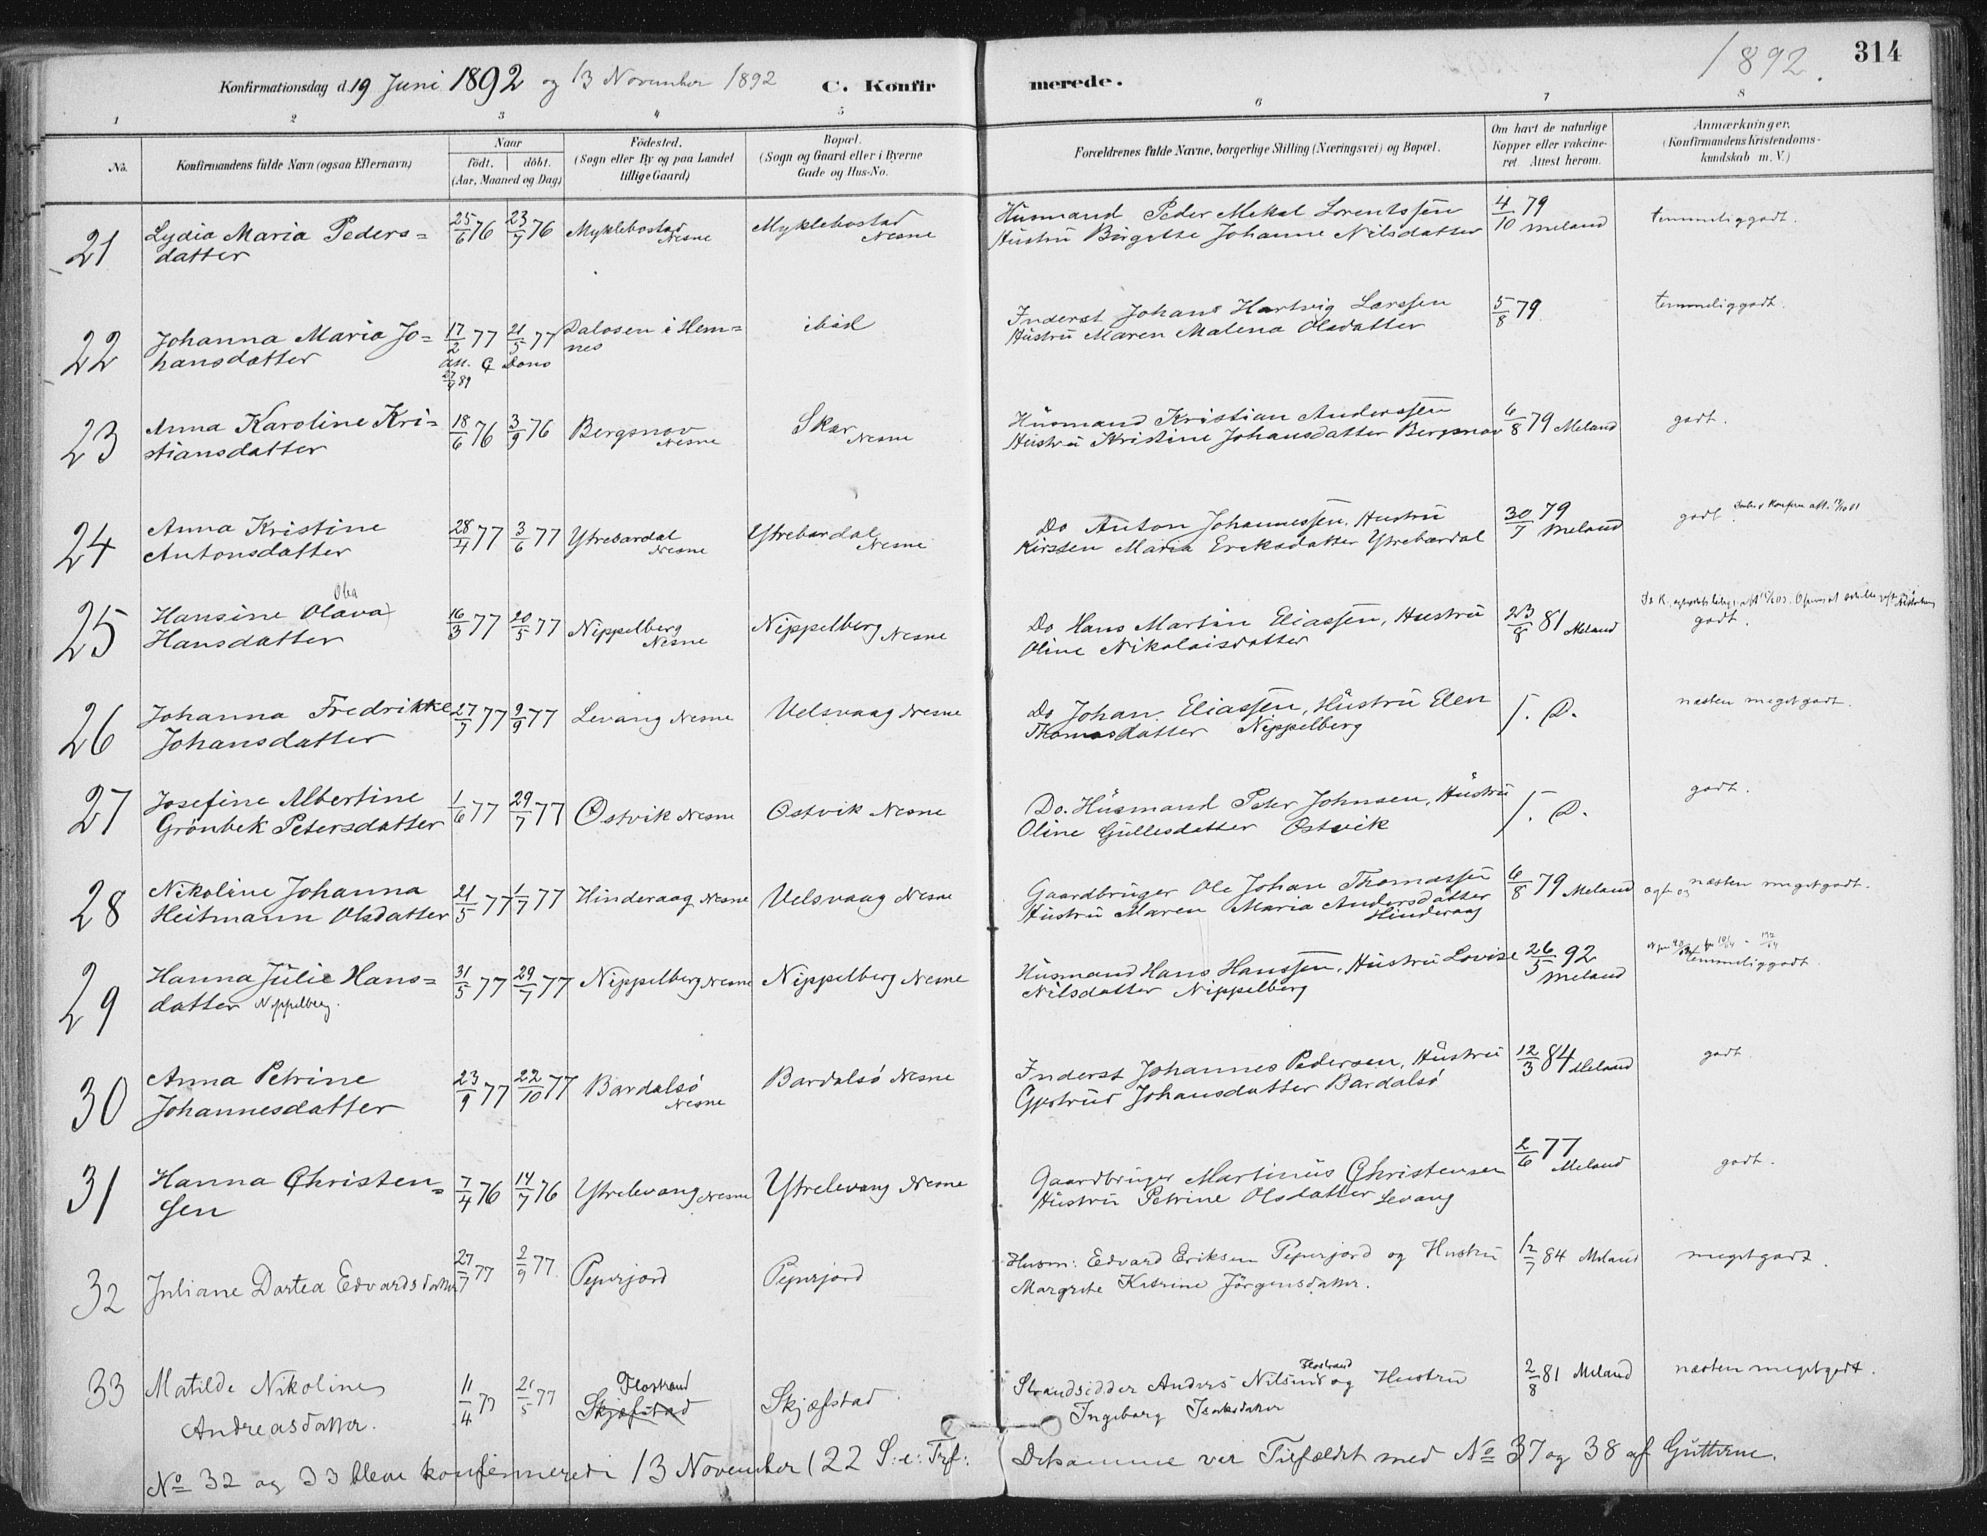 1892. 314
Konfirmationsdag d. 19 Juni 1892 og 13 November 1892 C. Konfirmerede.
1 2 3 4 5 6 7 8
No. Konfirmandens fulde Navn (ogsaa Efternavn) Naar født. døbt. (Aar, Maaned og Dag) Fødested. (Sogn eller By og paa Landet tillige Gaard) Bopæl. (Sogn og Gaard eller i Byerne Gade og Hus-No. Forældrenes fulde Navne, borgerlige Stilling (Næringsvei) og Bopæl. Om havt de naturlige Kopper eller vakcineret. Attest herom. Anmærkninger. (Konfirmandens Kristendomskundskab m. V.)
21 Lydia Maria Peders= 25/6 76 23/7 76 Myklebostad Nesne Myklebostad Nesne Husmand Peder Mekal Lorentssen 4/10 79 Meland temmeliggodt.
datter Hustru Birgitte Johanne Nilsdatter
22 Johanna Maria Jo= 17/2 77 21/5 77 Dalosen i Hem= ibid Inderst Johans Hartvig Larssen 5/8 79 temmeliggodt.
hansdatter nes Hustru Maren Malena Olsdatter
23 Anna Karoline Kri= 18/6 76 3/9 76 Bergsnov Nesne Skar Nesne Husmand Kristian Anderssen 6/8 79 Meland godt.
stiansdatter Hustru Kristine Johansdatter Bergsnov
24 Anna Kristine 28/4 77 3/6 77 Ytrebardal Nesne Ytrebardal Nesne Do Anton Johannessen, Hustru 30/7 79 Meland godt.
Antonsdatter Kirsten Maria Eriksdatter Ytrebærdal
Olea
25 Hansine Olava 16/3 77 20/5 77 Nippelberg Nesne Nippelberg Nesne Do Hans Martin Eliassen, Hustru 23/8 81 Meland godt.
Hansdatter Oline Nikolaisdatter
26 Johanna Fredrikke 27/7 77 9/9 77 Levang Nesne Velsvaag Nesne Do Johan Eliassen, Hustru Elen I. D. næsten megetgodt.
Johansdatter Thomasdatter Nippelberg
27 Josefine Albertine 1/6 77 29/7 77 Ostvik Nesne Ostvik Nesne Do. Husmand Peter Johnsen, Hustru I. D. godt.
Grönbek Petersdatter Oline Gullesdatter Ostvik
28 Nikoline Johanna 21/5 77 1/7 77 Hinderaag Nesne Velsvaag Nesne Gaardbruger Ole Johan Thomassen 6/8 79 Meland næsten megetgodt.
Heitmann Olsdatter Hustru Maren Maria Andersdatter Hinderaag
29 Hanna Julie Hans= 31/5 77 29/7 77 Nippelberg Nesne Nippelberg Nesne Husmand Hans Hanssen, Hustru Lovise 26/5 92 Meland temmeliggodt.
datter Nippelberg. Nilsdatter Nippelberg
30 Anna Petrine 23/9 77 22/10 77 Bardalsö Nesne Bardalsö Nesne Inderst Johannes Pedersen, Hustru 12/3 84 Meland godt.
Johannesdatter Johansdatter Bardalsö
31 Hanna Christen= 7/4 76 14/7 76 Ytrelevang Nesne Ytrelevang Nesne Gaardbruger Martinus Christensen 2/6 77 Meland godt.
sen Hustru Petrine Olsdatter Levang
32 Juliane Dortea Edvardsdatter 27/7 77 2/9 77 Pepurjord Pepurjord Husm: Edvard Eriksen Pepurjord og Hustru 12/7 84 Meland megetgodt.
Margrete Katrine Jörgensdatter.
33 Matilde Nikoline 11/4 77 21/5 77 Flostrand Skjæfstad Skjæfstad Strandsidder Anders Nilsen Flostrand og Hustru 2/8 81 Meland næsten megetgodt.
Andreasdatter. Ingeborg Isaksdatter
No 32 og 33 bleve konfirmerede 13 November (22 S: e: Tref: Detsamme var Tilfældet med No 37 og 38 af Gutterne.